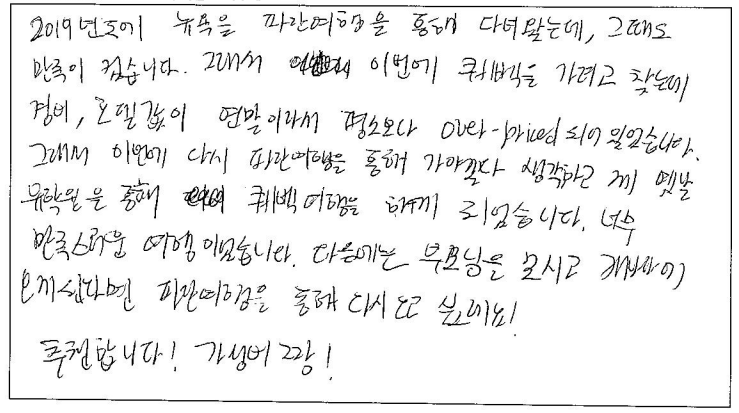 2019년도에 뉴욕을 파란여행을 통해 다녀왔는데, 그때도
만족이 컸습니다. 그래서 이번에 퀘벡을 가려고 찾는데
경비, 호텔값이 연말이라서 평소보다 over-priced 되어 있었습니다.
그래서 이번에 다시 파란여행을 통해 가야겠다 생각하고 제 옛날
유학원을 통해 퀘벡여행을 하게 되었습니다. 너무
만족스러운 여행이었습니다. 다음에는 부모님을 모시고
오게된다면 파란여행을 통해 다시 오고 싶네요!
추천합니다! 가성비 짱!